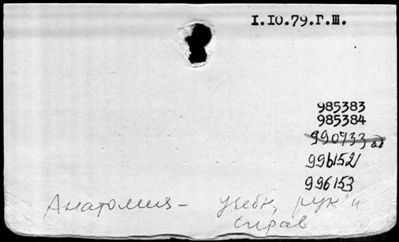 I.10.79.Г.Ш.
985383
985384
990733
996152
996153
Анатомия – учебн, рук и
справ